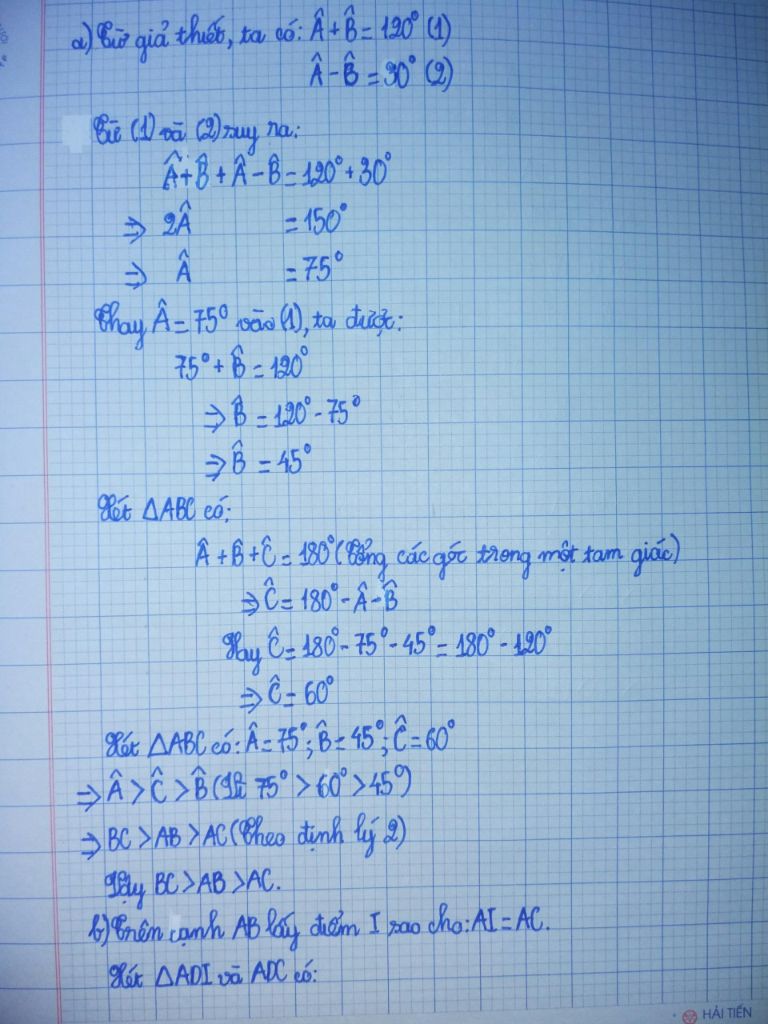 a) Từ giả thiết, ta có: Â + B̂ = 120° (1)
Â - B̂ = 30° (2)
Từ (1) và (2) suy ra:
Â + B̂ + Â - B̂ = 120° + 30°
⇒ 2Â = 150°
⇒ Â = 75°
Thay Â = 75° vào (1), ta được:
75° + B̂ = 120°
⇒ B̂ = 120° - 75°
⇒ B̂ = 45°
Xét △ABC có:
Â + B̂ + Ĉ = 180° (Tổng các góc trong một tam giác)
⇒ Ĉ = 180° - Â - B̂
Hay Ĉ = 180° - 75° - 45° = 180° - 120°
⇒ Ĉ = 60°
Xét △ABC có: Â = 75°; B̂ = 45°; Ĉ = 60°
⇒ Â > Ĉ > B̂ (Vì 75° > 60° > 45°)
⇒ BC > AB > AC (Theo định lý 2)
Vậy BC > AB > AC.
b) Trên cạnh AB lấy điểm I sao cho: AI = AC.
Xét △ADI và ADC có:
HẢI TIẾN